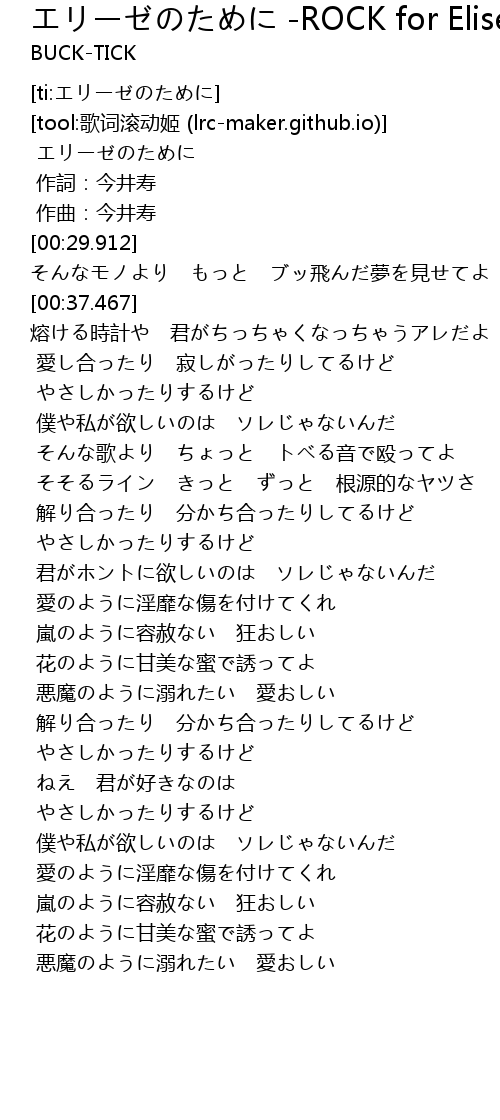 エリーゼのために -ROCK for Elise
BUCK-TICK
[ti:エリーゼのために]
[tool:歌词滚动姬 (lrc-maker.github.io)]
エリーゼのために
作詞：今井寿
作曲：今井寿
[00:29.912]
そんなモノより　もっと　ブッ飛んだ夢を見せてよ
[00:37.467]
熔ける時計や　君がちっちゃくなっちゃうアレだよ
愛し合ったり　寂しがったりしてるけど
やさしかったりするけど
僕や私が欲しいのは　ソレじゃないんだ
そんな歌より　ちょっと　トべる音で殴ってよ
そそるライン　きっと　ずっと　根源的なヤツさ
解り合ったり　分かち合ったりしてるけど
やさしかったりするけど
君がホントに欲しいのは　ソレじゃないんだ
愛のように淫靡な傷を付けてくれ
嵐のように容赦ない　狂おしい
花のように甘美な蜜で誘ってよ
悪魔のように溺れたい　愛おしい
解り合ったり　分かち合ったりしてるけど
やさしかったりするけど
ねえ　君が好きなのは
やさしかったりするけど
僕や私が欲しいのは　ソレじゃないんだ
愛のように淫靡な傷を付けてくれ
嵐のように容赦ない　狂おしい
花のように甘美な蜜で誘ってよ
悪魔のように溺れたい　愛おしい